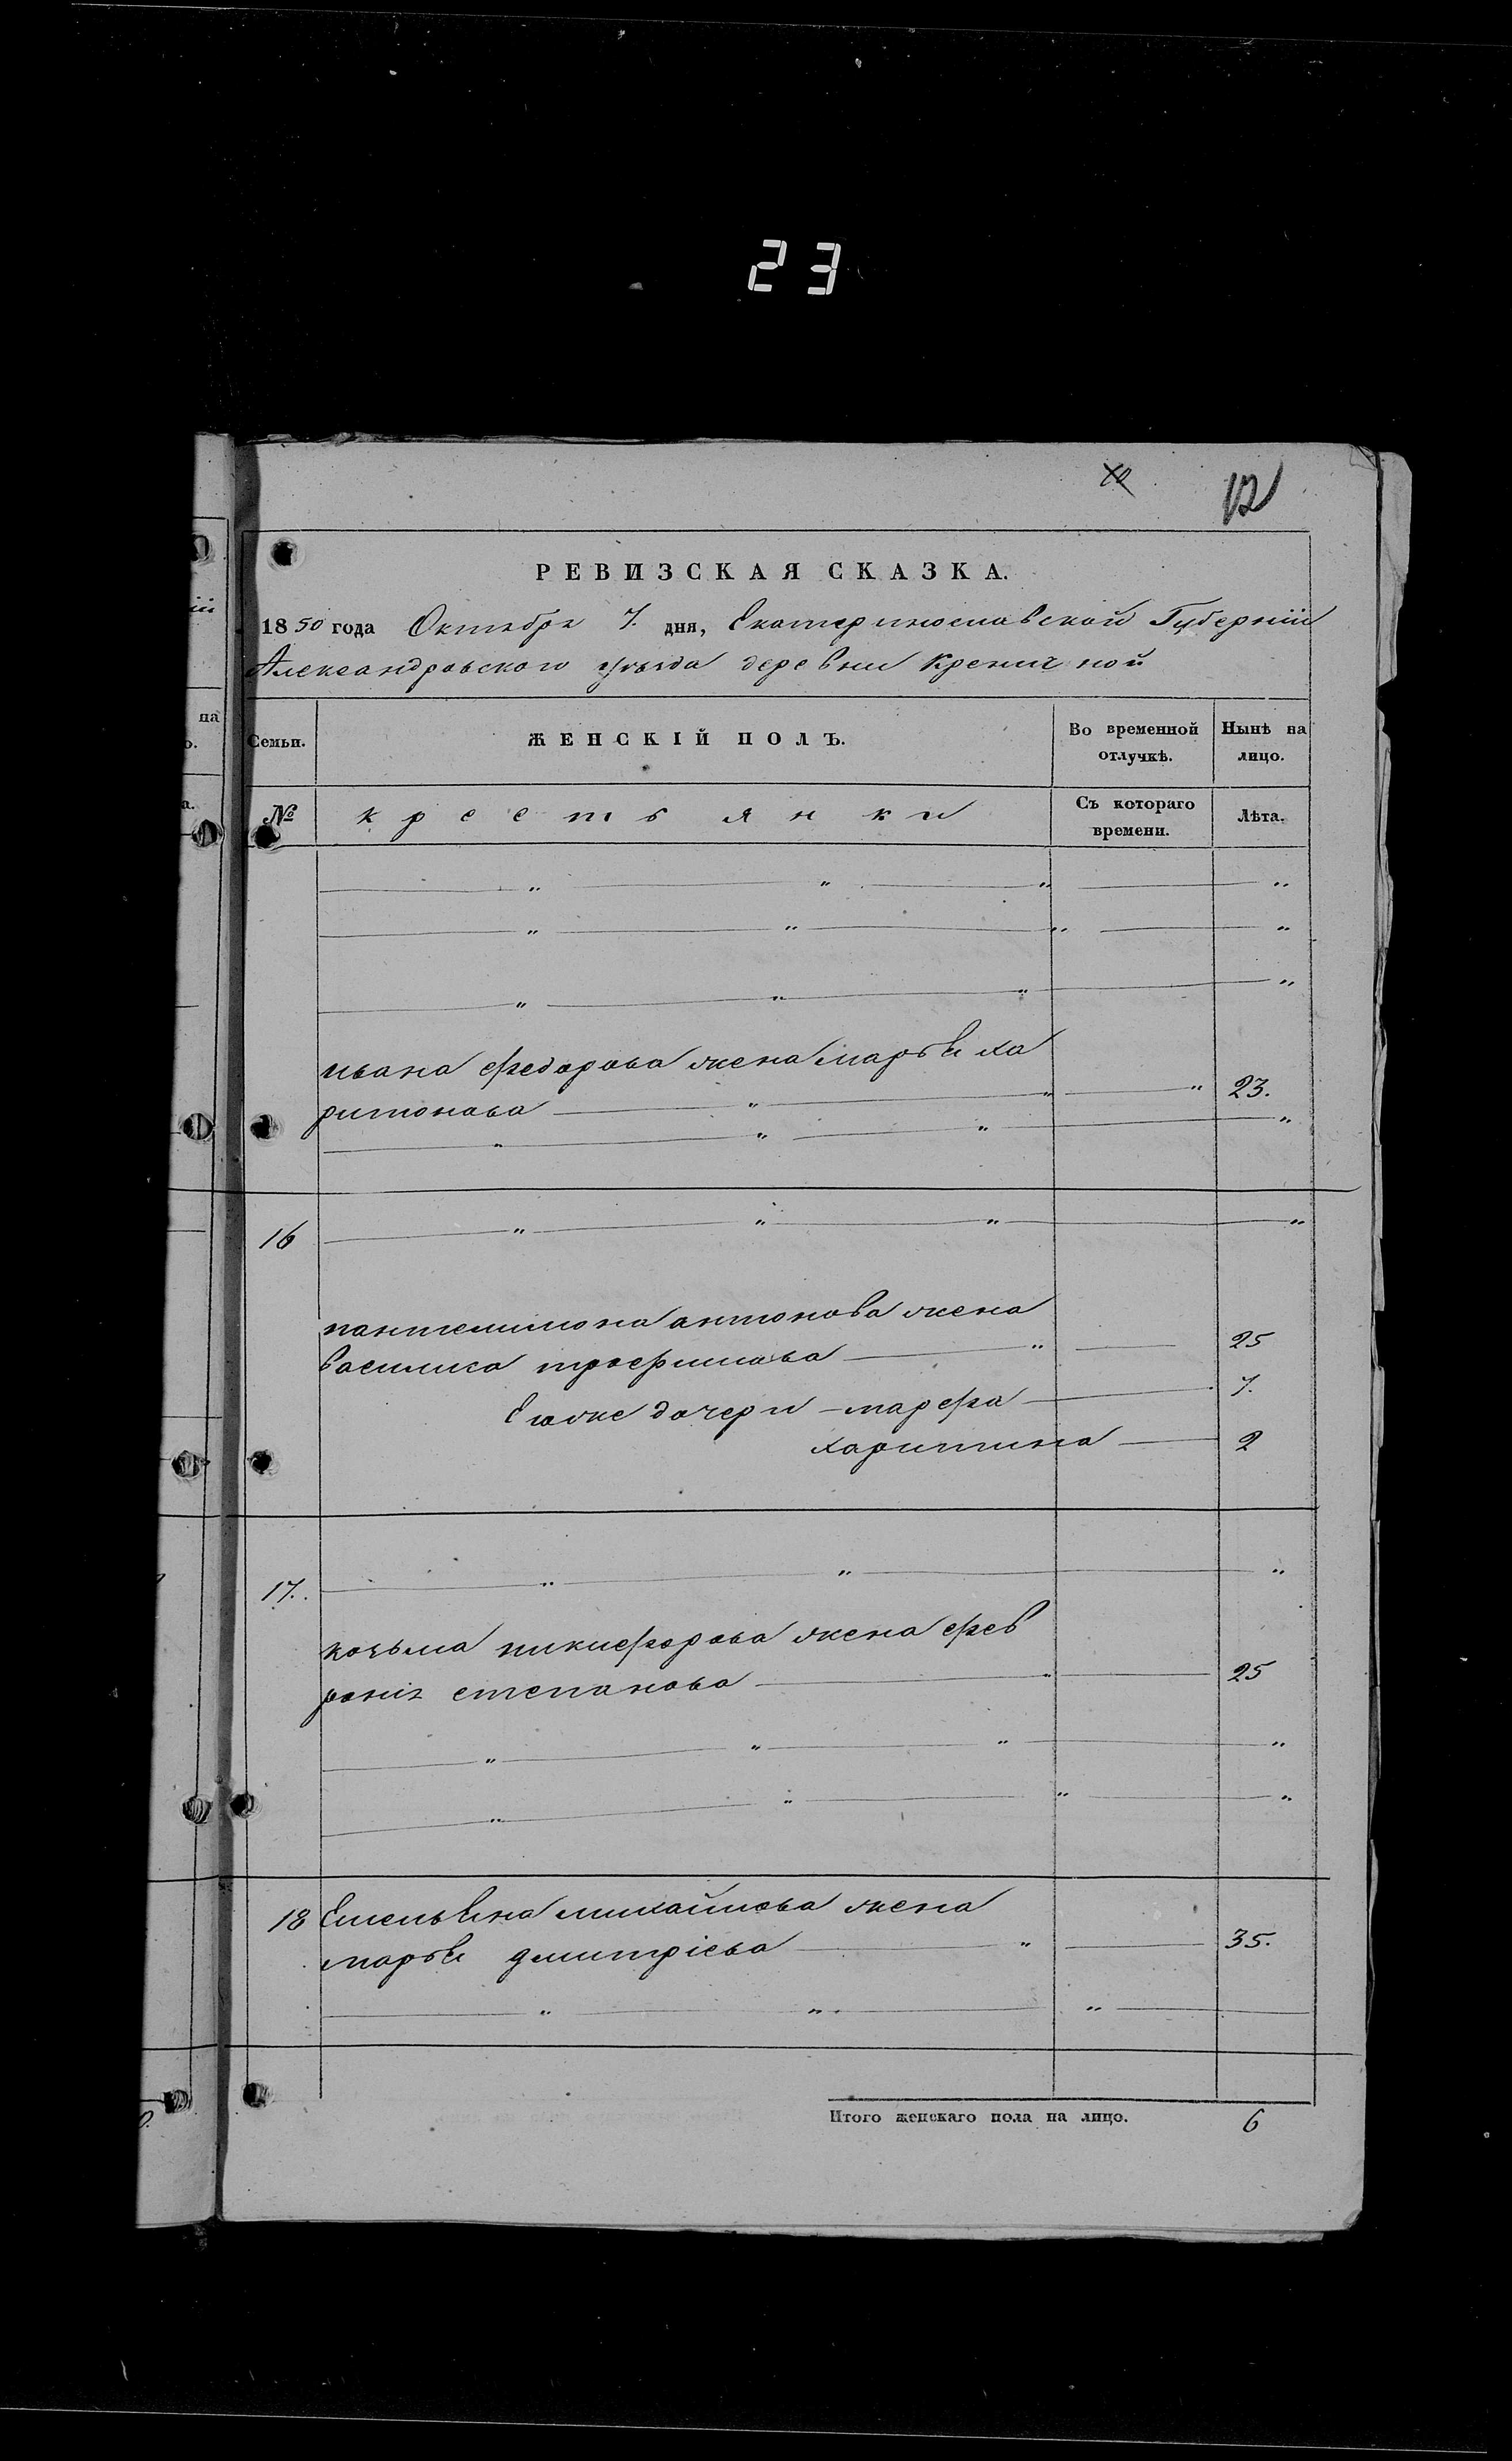 23
10
12
РЕВИЗСКАЯ СКАЗКА.
1850 года Октября 7. дня, Екатеринославской Губерніи
Александровского уѣзда деревни Кременной
Семьи.
ЖЕНСКІЙ ПОЛЪ.
Во временной отлучкѣ.
Нынѣ на лицо.
№
крестьянки
Съ котораго времени.
Лѣта.
ивана федорова жена марья ха
ритонова 23.
16
пантелимона антонова жена
василиса трофимова 25
Еіоже дочери марфа 7.
харитина 2
17.
козьма никифорова жена фев
ронія степанова 25
18 Емельяна михайлова жена
марья дмитріева 35.
Итого женскаго пола на лицо. 6